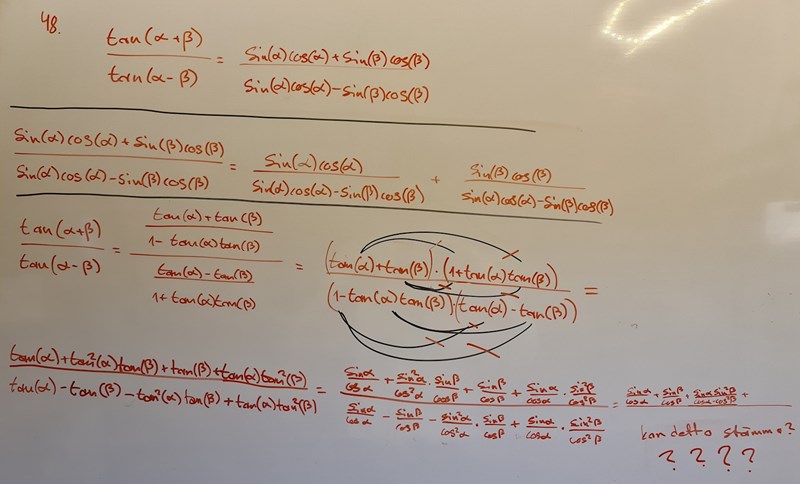 48.
tan(α+β) / tan(α-β) = sin(α)cos(α)+sin(β)cos(β) / sin(α)cos(α)-sin(β)cos(β)
sin(α)cos(α)+sin(β)cos(β) / sin(α)cos(α)-sin(β)cos(β) = sin(α)cos(α) / sin(α)cos(α)-sin(β)cos(β) + sin(β)cos(β) / sin(α)cos(α)-sin(β)cos(β)
tan(α+β) / tan(α-β) = (tan(α)+tan(β) / 1-tan(α)tan(β)) / (tan(α)-tan(β) / 1+tan(α)tan(β)) = (tan(α)+tan(β))·(1+tan(α)tan(β)) / (1-tan(α)tan(β))·(tan(α)-tan(β)) =
tan(α)+tan²(α)tan(β)+tan(β)+tan(α)tan²(β) / tan(α)-tan(β)-tan²(α)tan(β)+tan(α)tan²(β) = sinα/cosα + sin²α/cos²α · sinβ/cosβ + sinβ/cosβ + sinα/cosα · sin²β/cos²β / sinα/cosα - sinβ/cosβ - sin²α/cos²α · sinβ/cosβ + sinα/cosα · sin²β/cos²β = sinα/cosα + sinβ/cosβ + sinα sin²β/cosα·cos²β +
kan detta stämma?
? ? ? ?